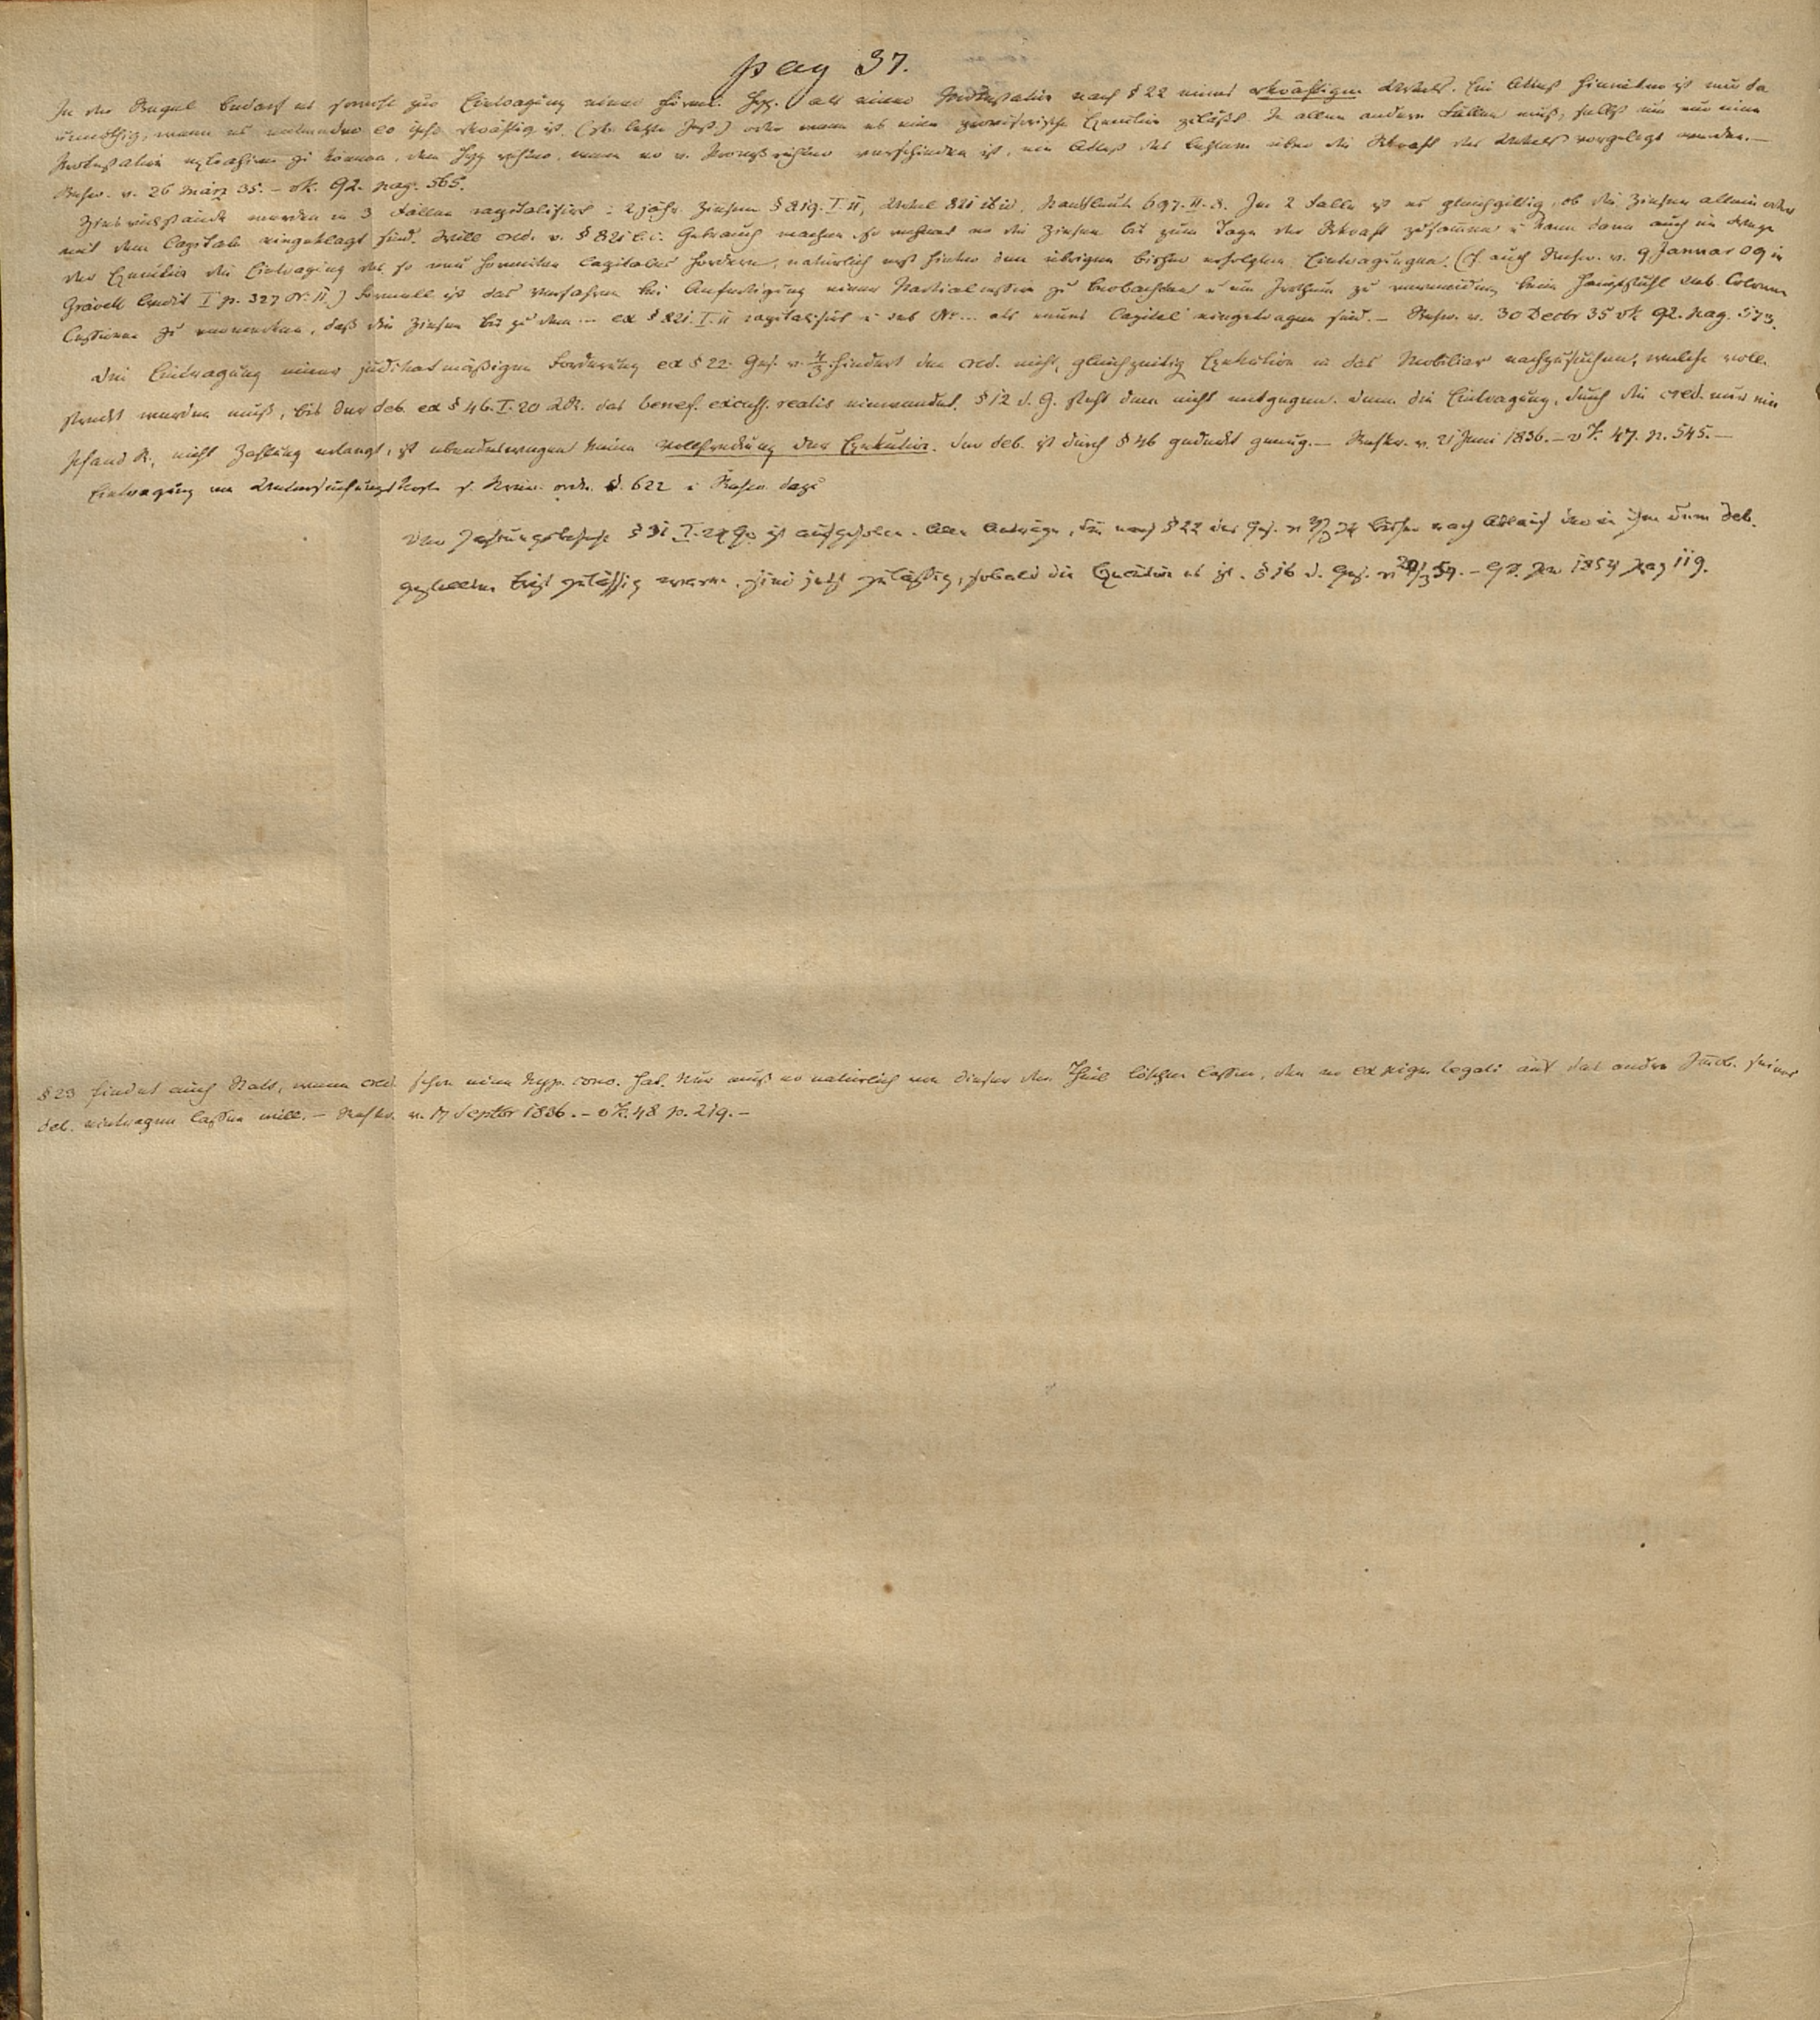 pag 37.
In der Regel bedarf es sowohl zur Eintragung einer förml. Hyp. als einer Protestation nach § 22 eines rkräftigen Urtels. Ein Attest hierüber ist nur da
unnöthig, wenn es entweder eo ipso rkräftig ist, (dr. letzte Inst.) oder wenn es eine provisorische Execution zuläßt. In allen andern Fällen muß, selbst um nur eine
Protestation zu können, dem Hyp richter, wenn er v. Prozeßrichter verschieden ist, ein Attest des letztern über die Rkraft des Urtels vorgelegt werden. —
Rescr. v. 26 März 35. – 92. pag. 565.
Zinsrückstände werden in 3 Fällen capitalisirt: 2 jähr. Zinsen § 819. I. 11, Urtel 821 ibid, Kaufleute 697. II. 8. Im 2 Falle ist es gleichgiltig, ob die Zinsen allein oder
mit dem Capitale eingeklagt sind. Will cred. v. § 821 l. c. Gebrauch machen so rechnet er die Zinsen bis zum Tage der Rkraft zusammen u kann dann auch im Wege
der Execution die Eintragung des so neu formirten Capitales fordern, natürlich erst hinter den übrigen bisher erfolgten Eintragungen. (cf. auch Rescr. v. 9 Januar 09 in
Grävell Credit I p. 327 Nr. 11.) Formell ist das Verfahren bei Anfertigung einer zu beobachten u um Irrthum zu vermeiden, beim Hauptstuhl sub. Colonne
Cessionen zu vermerken, daß die Zinsen bis zu dem ... ex § 821. I. 11 capitalisirt u sub Nr... als neues Capital eingetragen sind. – Rescr. v. 30 Decbr 35 92. pag. 573.
Die Eintragung einer judikatmäßigen Forderung ex § 22. Ges. v. hindert den cred. nicht, gleichzeitig Exekution in das Mobiliar nachzusuchen, welche voll-
streckt werden muß, bis der deb. ex § 46. I. 20 LR. das benef. excuss. realis einwendet. § 12 d. G. steht dem nicht entgegen. denn die Eintragung, durch die cred. nur ein
Pfand R., nicht Zahlung erlangt, ist ebendeswegen keine Vollstreckung der Exekution. Der deb. ist durch § 46 gedeckt genug. — Reskr. v. 21 Juni 1836. – 47. p. 545. —
Eintragung von Untersuchungskosten s. Krim. ordn. §. 622 u Rescr. dazu
Der Zahlungsbefehl § 31 I. 24 GO ist aufgehoben. Alle Anträge, die nach § 22 des Ges. v bisher nach Ablauf der in ihm dem deb.
gestellten Frist zulässig waren, sind jetzt zulässig, sobald die Execution es ist. § 16 d. Ges. v 20/3 54. – GS. pro 1854 pag 119.
§ 23 findet auch Statt, wenn cred. schon eine Hyp. conv. hat. Nur muß er natürlich von dieser den Theil löschen lassen, den er ex pign. legali auf das andre Grdst. seines
deb. eintragen lassen will. – Reskr. v. 17 Septbr 1836. – 48 p. 219. –